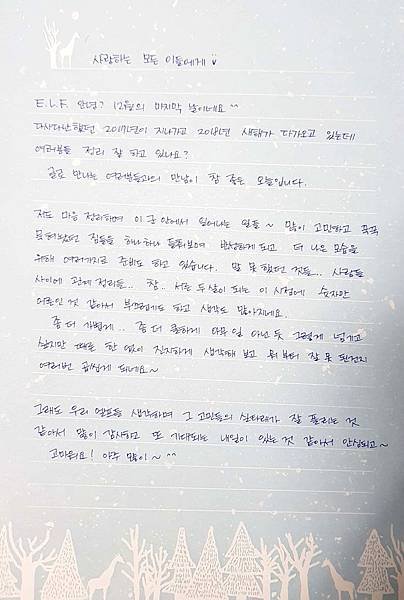 사랑하는 모든 이들에게
E.L.F 안녕? 12월의 마지막 날이네요 ^^
다사다난했던 2017년이 지나가고 2018년 새해가 다가오고 있는데
여러분들 정리 잘 하고 있나요?
글로 만나는 여러분들과의 만남이 참 좋은 오늘입니다.
저도 마음 정리하며 이 공간 안에서 일어나는 일들 ~ 많이 고민하고 꾹꾹
못했던 짐들을 하나 하나 들춰보며 반성하게 되고 더 나은 모습을
위해 여러가지로 준비도 하고 있습니다. 말 못 했던 것들... 사람들
사이에 관계 정리들... 참.. 서른 두살이 되는 이 시점에 숫자만
어른인 것 같아서 부끄럽게도 하고 생각도 많아지네요.
좀 더 가볍게.. 좀 더 쿨하게 아무 일 아닌 듯 그렇게 넘기고
싶지만 때론 한 없이 진지하게 생각해 보고 뭐부터 잘 못 된건지
여러번 곱씹게 되네요~
그래도 우리 엘프들 생각하며 그 고민들의 실타래가 잘 풀리는 것
같아서 많이 감사하고 또 기대되는 내일이 있는 것 같아서 안심되고~
고마워요! 아주 많이 ~ ^^